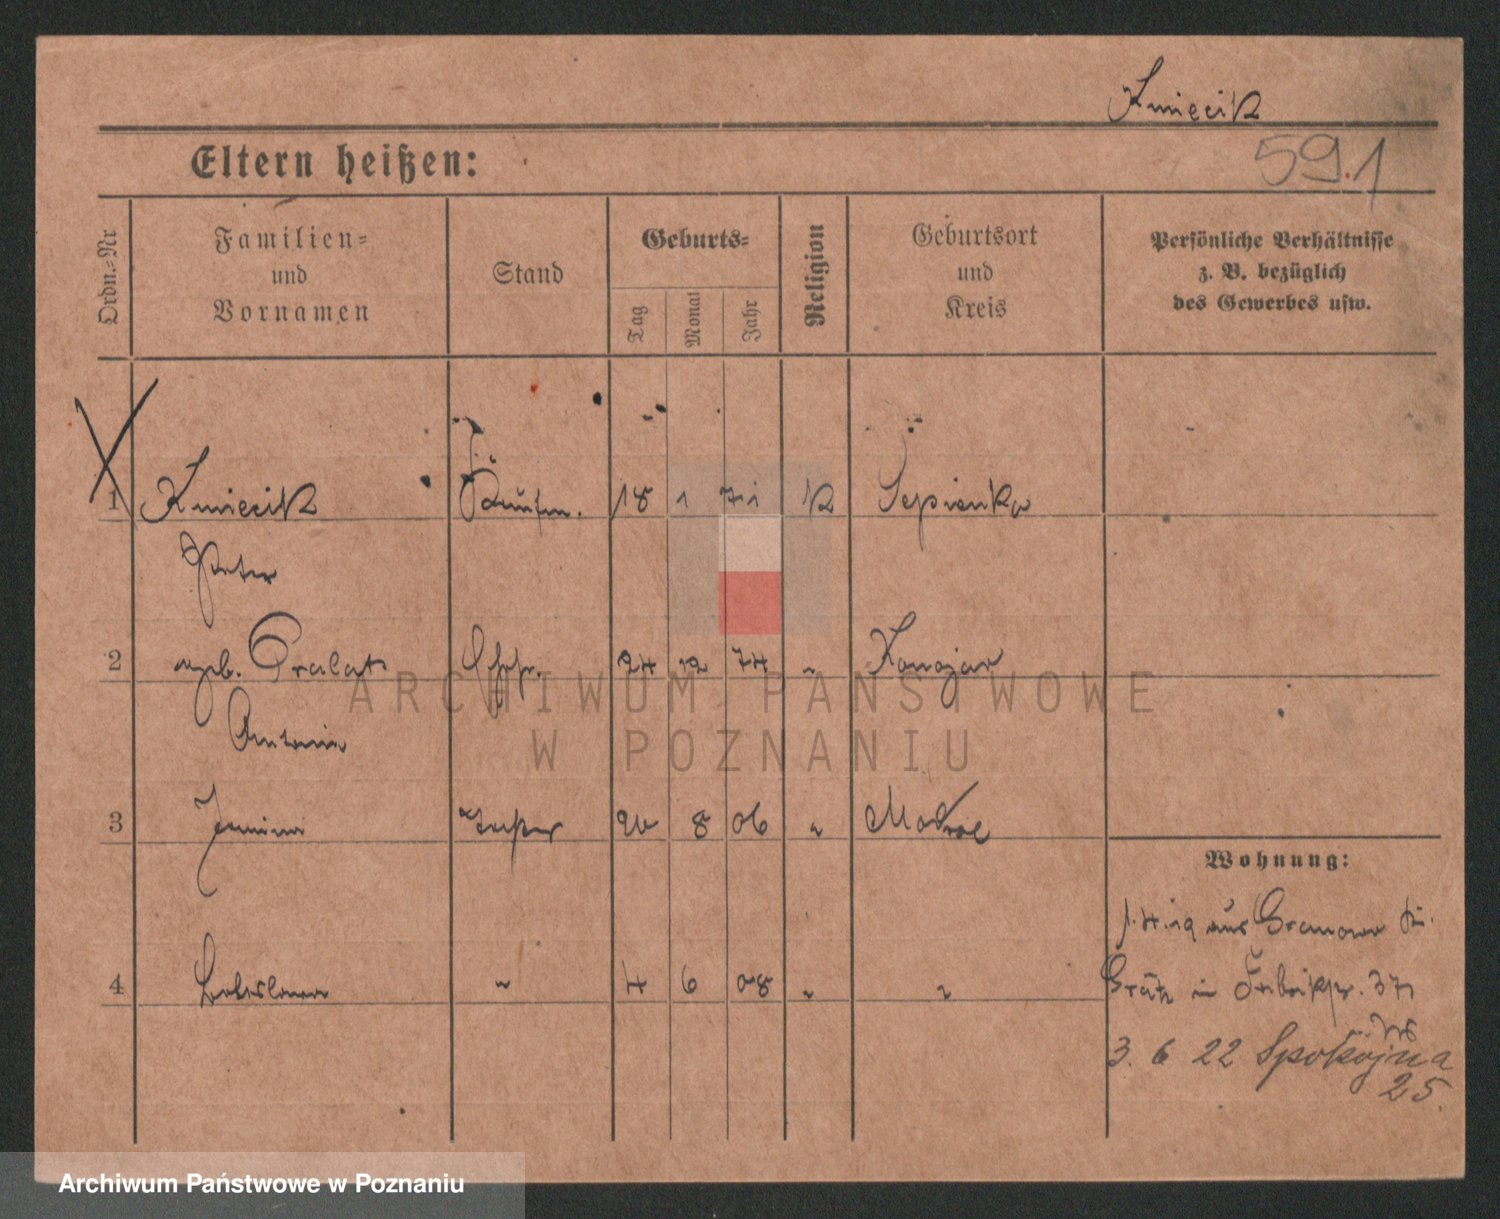 Kmiecik
Eltern heißen:
591
Ordn.-Nr
Familien-
und
Vornamen
Stand
Geburts-
Tag
Monat
Jahr
Religion
Geburtsort
und
Kreis
Persönliche Verhältnisse
z. B. bezüglich
des Gewerbes usw.
1 Kmiecik Kaufm. 18 1 71 K Sepienko
Peter
2 geb. Pralat Ehfr. 24 12 74 " Konojad
Antonie
3 Janina 8 06 "
Wohnung:
1.4.19 aus Granowo
4 " 4 6 08 " "
Grätz in Fabrikstr. 37
3. 6 22 Spokojna
25.
ARCHIWUM PAŃSTWOWE
W POZNANIU
Archiwum Państwowe w Poznaniu